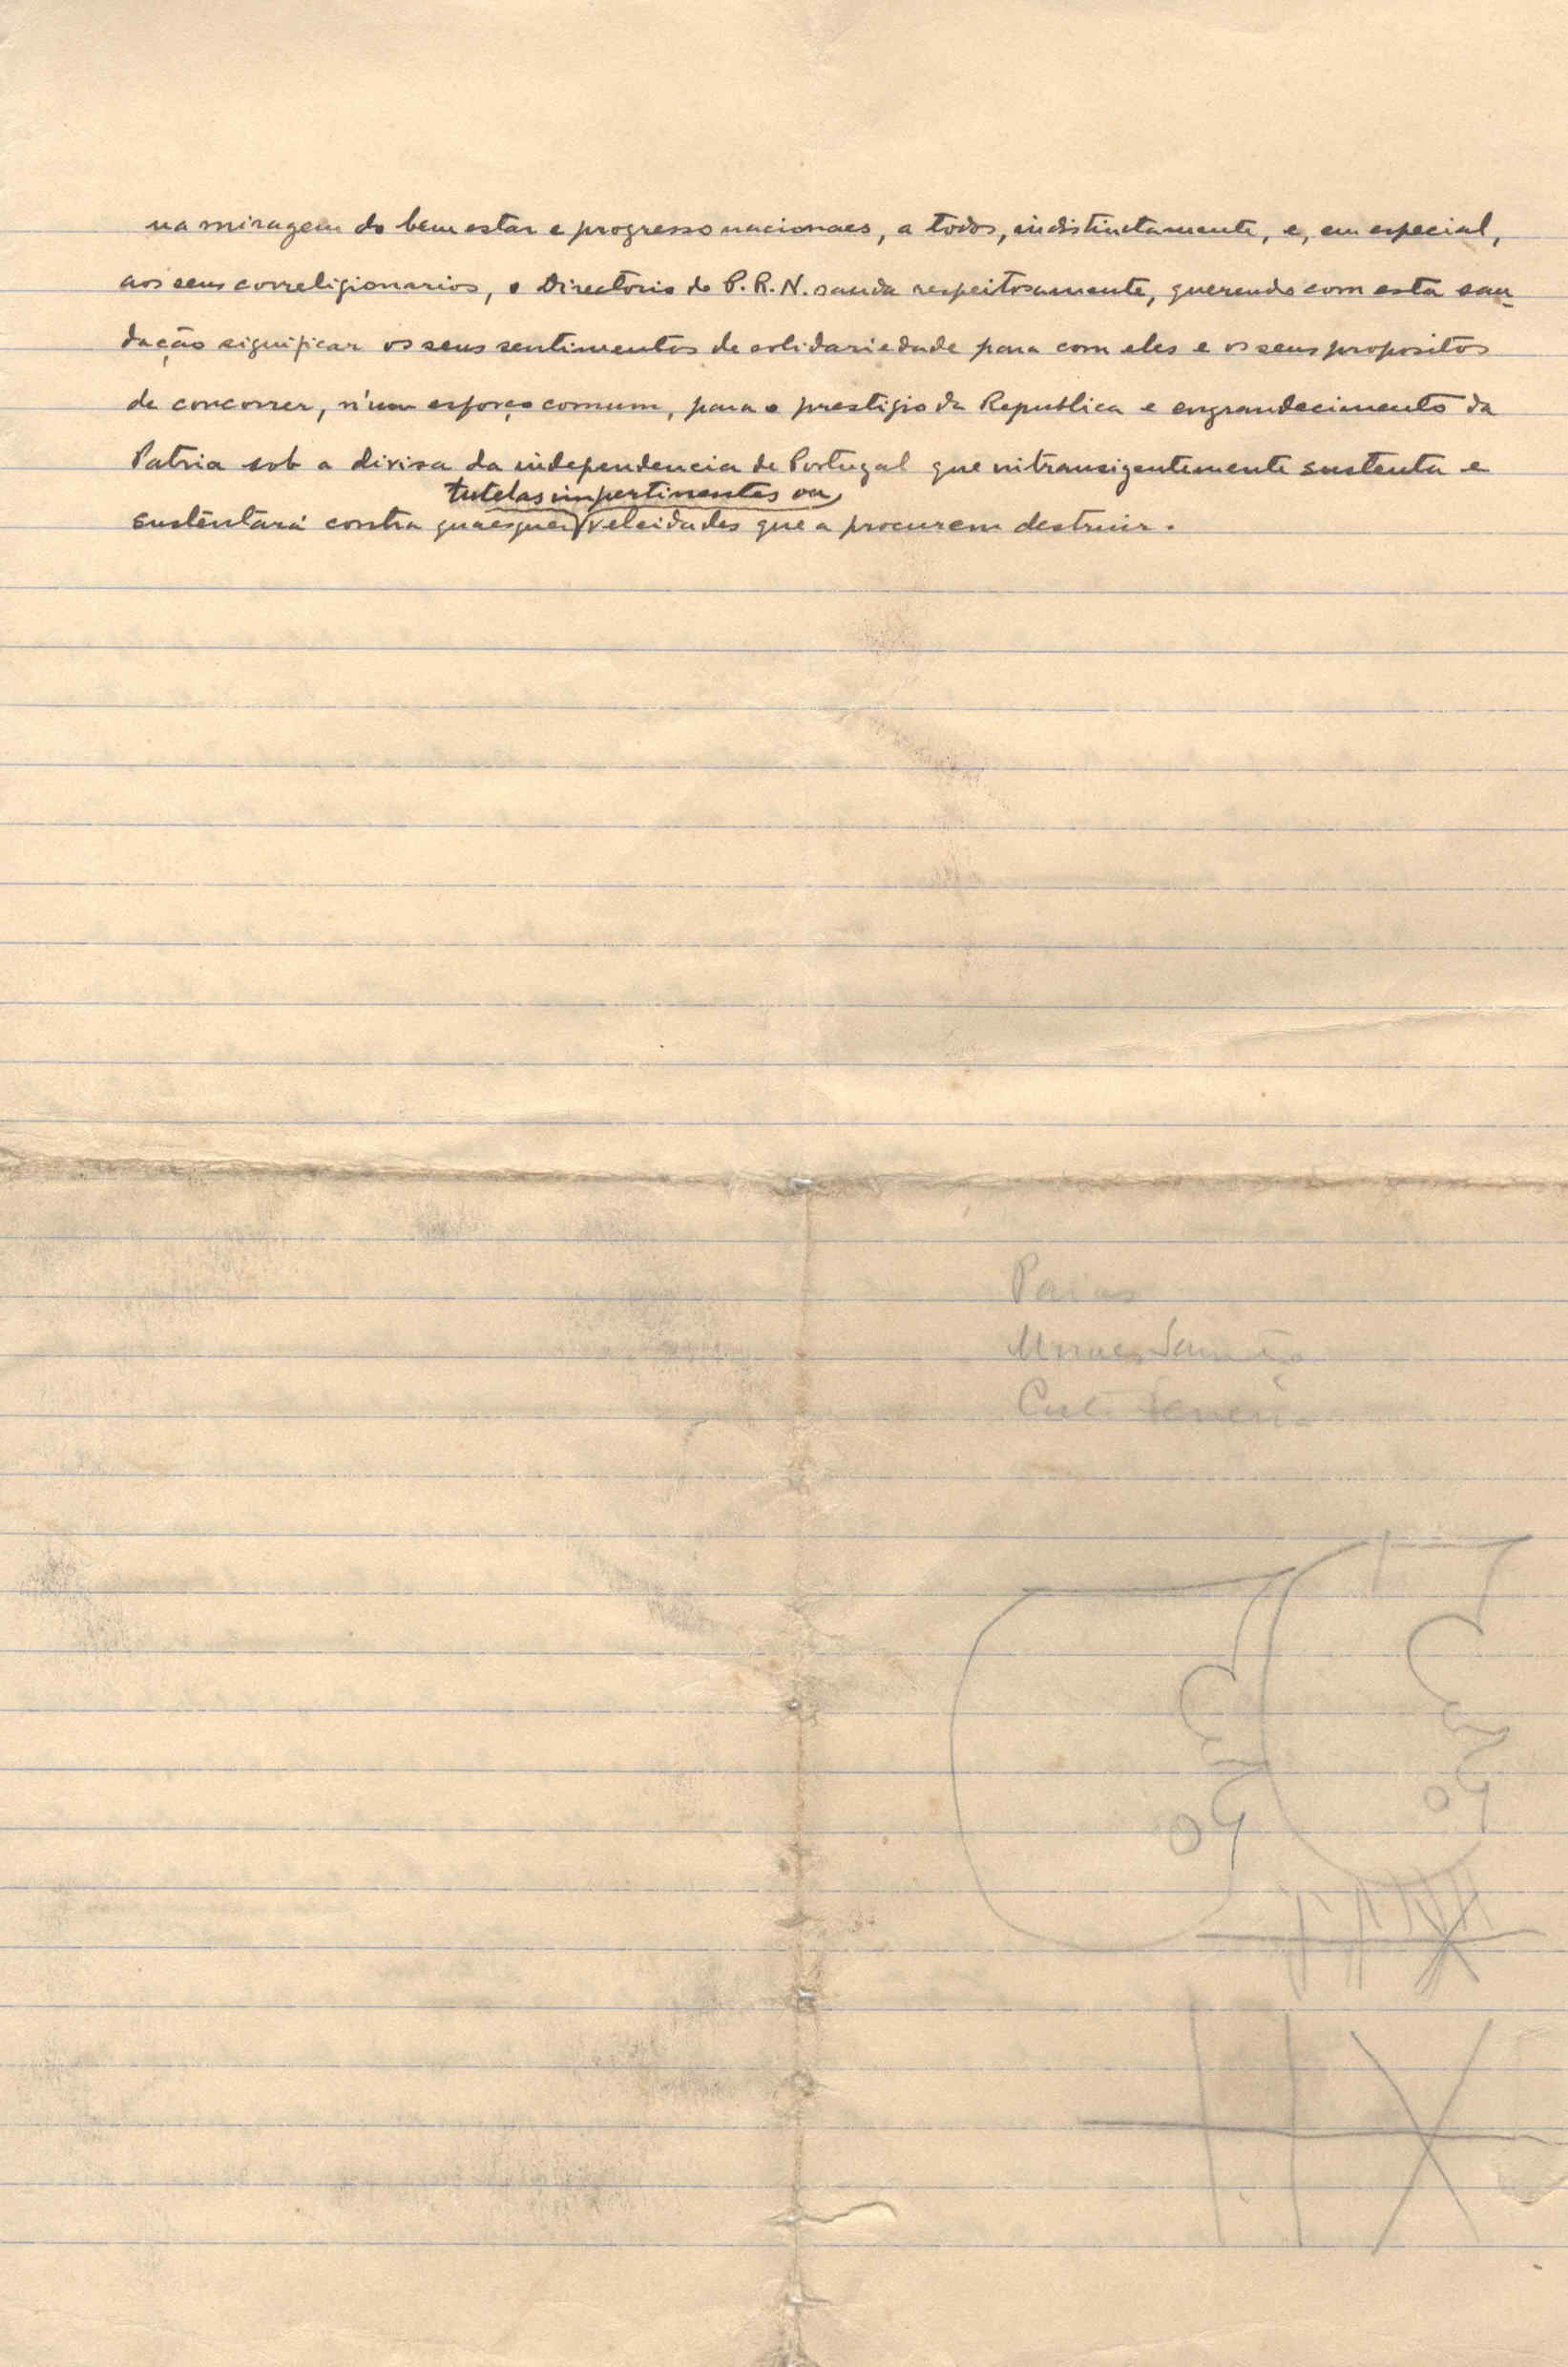 na miragem do bem estar e progresso nacionaes, a todos, indistinctamente, e, em especial,
aos seus correligionarios, o Directorio do P. R. N. sauda respeitosamente, querendo com esta sau-
dação significar os seus sentimentos de solidariedade para com eles e os seus propositos
de concorrer, n'um esforço comum, para o prestigio da Republica e engrandecimento da
Patria sob a divisa da independencia de Portugal que intransigentemente sustenta e
tutelas impertinentes ou
sustentará contra quaesquer veleidades que a procurem destruir.